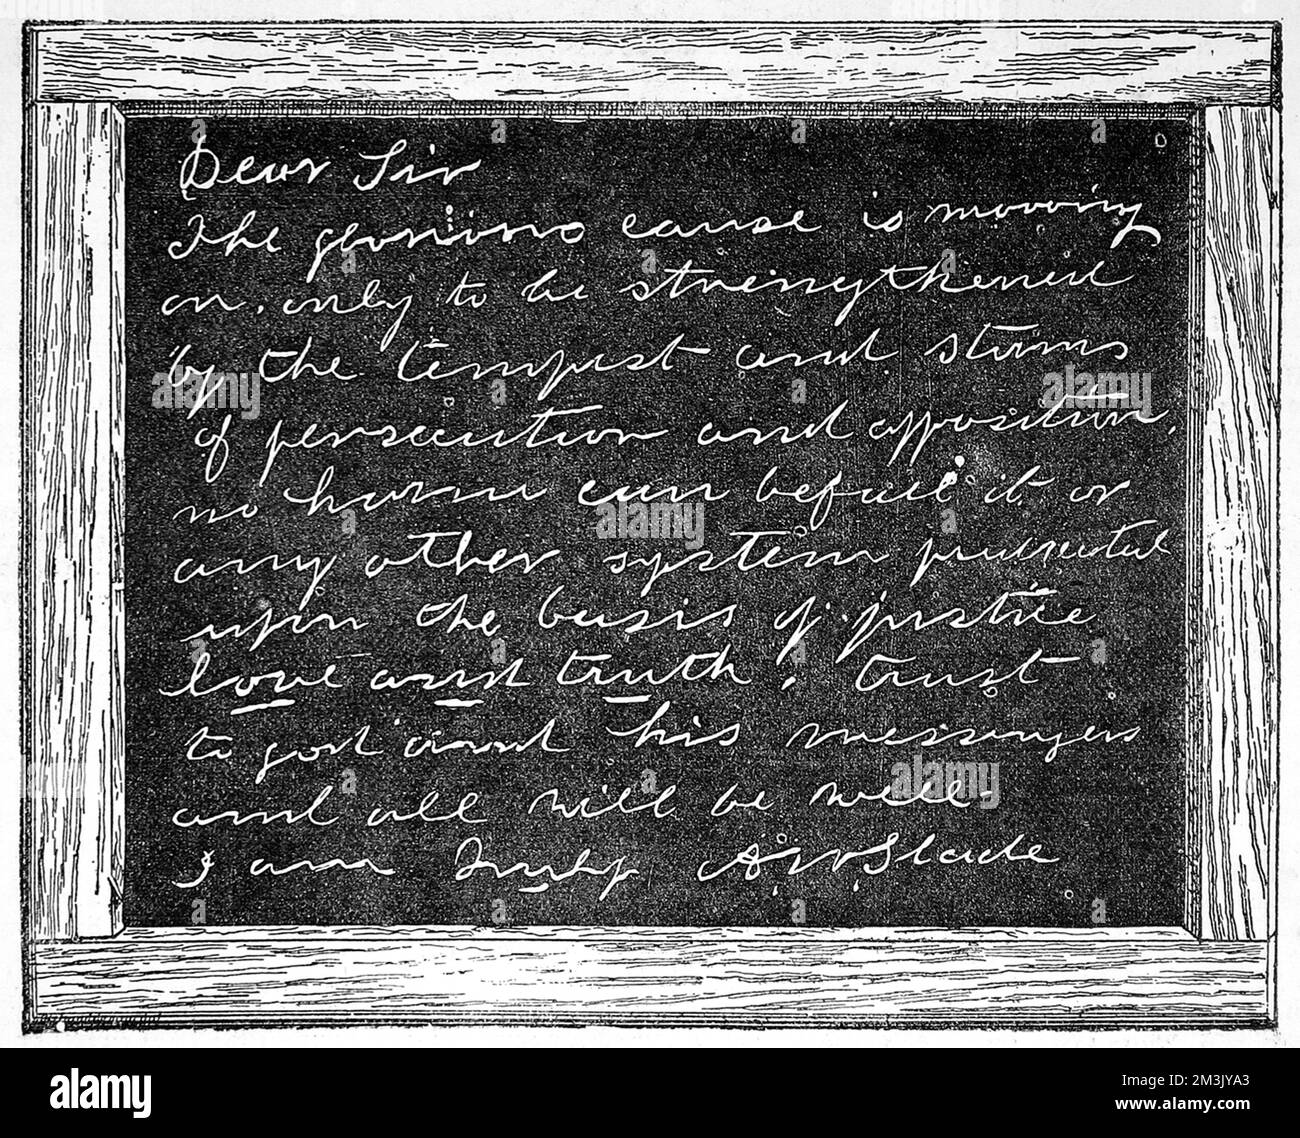 Dear Sir
The glorious cause is moving
on, only to be strengthened
by the tempest and storms
of persecution and opposition,
no harm can befall it or
any other system predicated
upon the basis of justice
love and truth, trust
to god and his messengers
and all will be well.
I am Truly A. W. Slade
alamy
Image ID: 2M3JYA3
www.alamy.com